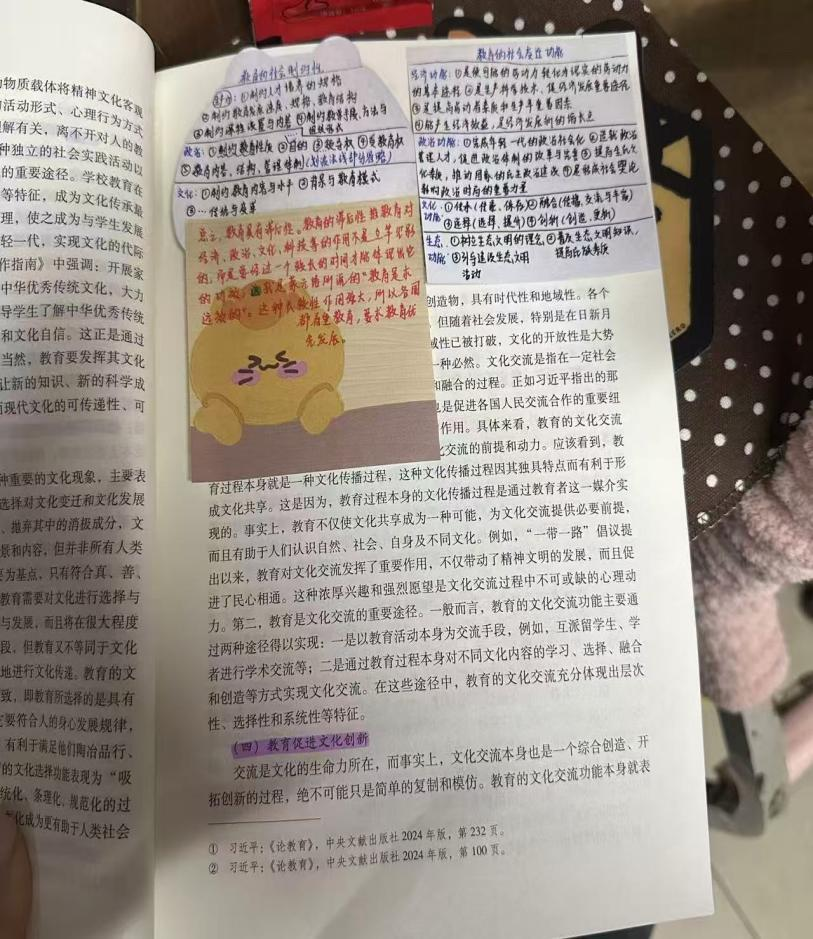 物质载体将精神文化客观
活动形式、心理行为方式
解有关，离不开对人的教
种独立的社会实践活动以
的重要途径。学校教育在
等特征，成为文化传承最
理，使之成为与学生发展
轻一代，实现文化的代际
作指南》中强调：开展家
中华优秀传统文化，大力
导学生了解中华优秀传统
和文化自信。这正是通过
当然，教育要发挥其文化
让新的知识、新的科学成
现代文化的可传递性、可
种重要的文化现象，主要表
选择对文化变迁和文化发展
、抛弃其中的消极成分，文
景和内容，但并非所有人类
要为基点，只有符合真、善、
教育需要对文化进行选择与
与发展，而且将在很大程度
段，但教育又不等同于文化
地进行文化传递。教育的文
致，即教育所选择的是具有
它要符合人的身心发展规律，
有利于满足他们陶冶品行、
的文化选择功能表现为“吸
统化、条理化、规范化的过
化成为更有助于人类社会
教育的社会制约性
①制约人才培养的规格
政治：①制约教育性质 ②目的 ③领导权 ④受教育权
⑤教育内容、结构、管理体制
文化：①制约教育内容与水平 ②背景与教育模式
教育的社会变迁功能
经济功能：①是使可能的劳动力转化为现实的劳动力
的基本途径 ②是生产科学技术、促进经济发展重要途径
③是提高劳动者素质和生产率重要因素
④能产生经济效益，是经济发展新的增长点
政治功能：①完成年轻一代的政治社会化
文化
功能：
生态
功能：
①树立生态文明的理念，②普及生态文明知识，
提高民族素质
③引导建设生态文明
活动
总之，教育具有滞后性。教育的滞后性指教育对
经济、政治、文化、科技等的作用不是立竿见影
的，而是要经过一个较长的时间才能体现出它
的功效，这就是表示通常所说的“教育是永
远放的”。这种长效性作用强大，所以各国
都看重教育，要求教育优
先发展。
创造物，具有时代性和地域性。各个
但随着社会发展，特别是在日新月
域性已被打破，文化的开放性是大势
一种必然。文化交流是指在一定社会
和融合的过程。正如习近平指出的那
也是促进各国人民交流合作的重要纽
作用。具体来看，教育的文化交流
化交流的前提和动力。应该看到，教
育过程本身就是一种文化传播过程，这种文化传播过程因其独具特点而有利于形
成文化共享。这是因为，教育过程本身的文化传播过程是通过教育者这一媒介实
现的。事实上，教育不仅使文化共享成为一种可能，为文化交流提供必要前提，
而且有助于人们认识自然、社会、自身及不同文化。例如，“一带一路”倡议提
出以来，教育对文化交流发挥了重要作用，不仅带动了精神文明的发展，而且促
进了民心相通。这种浓厚兴趣和强烈愿望是文化交流过程中不可或缺的心理动
力。第二，教育是文化交流的重要途径。一般而言，教育的文化交流功能主要通
过两种途径得以实现：一是以教育活动本身为交流手段，例如，互派留学生、学
者进行学术交流等；二是通过教育过程本身对不同文化内容的学习、选择、融合
和创造等方式实现文化交流。在这些途径中，教育的文化交流充分体现出层次
性、选择性和系统性等特征。
（四）教育促进文化创新
交流是文化的生命力所在，而事实上，文化交流本身也是一个综合创造、开
拓创新的过程，绝不可能只是简单的复制和模仿。教育的文化交流功能本身就表
① 习近平：《论教育》，中央文献出版社 2024 年版，第 232 页。
② 习近平：《论教育》，中央文献出版社 2024 年版，第 100 页。